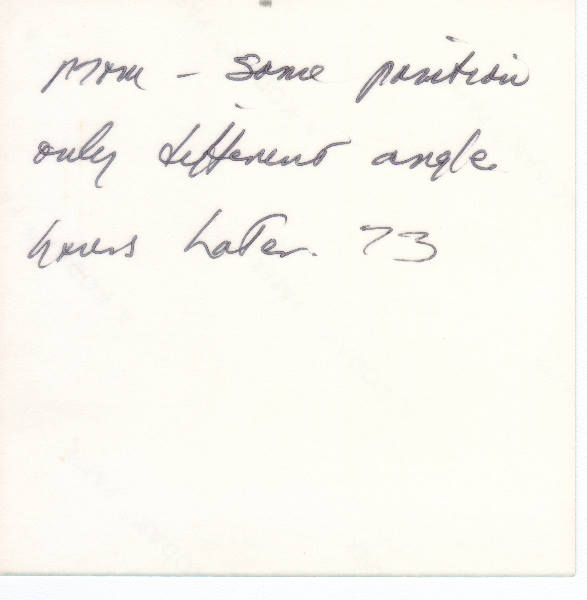 Mom - Same position
only different angle
hours Later. 73